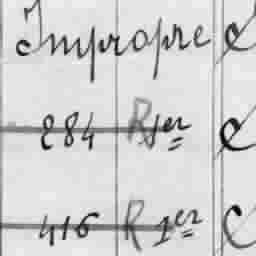 Impropre
284 R 1er
416 R 1er